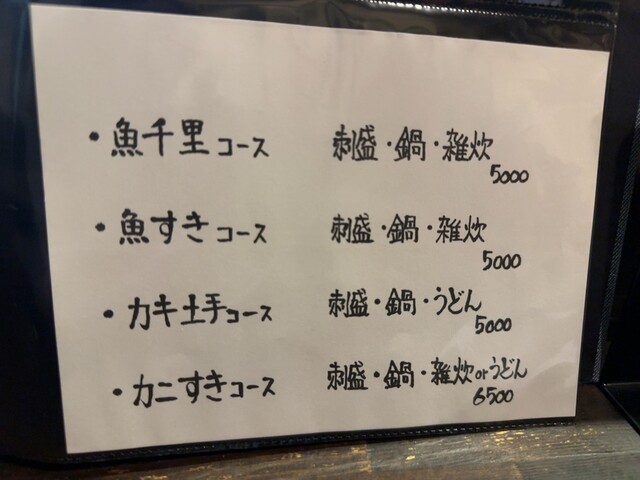 ・魚千里コース 刺盛・鍋・雑炊
5000
・魚すきコース 刺盛・鍋・雑炊
5000
・カキ土手コース 刺盛・鍋・うどん
5000
・カニすきコース 刺盛・鍋・雑炊orうどん
6500